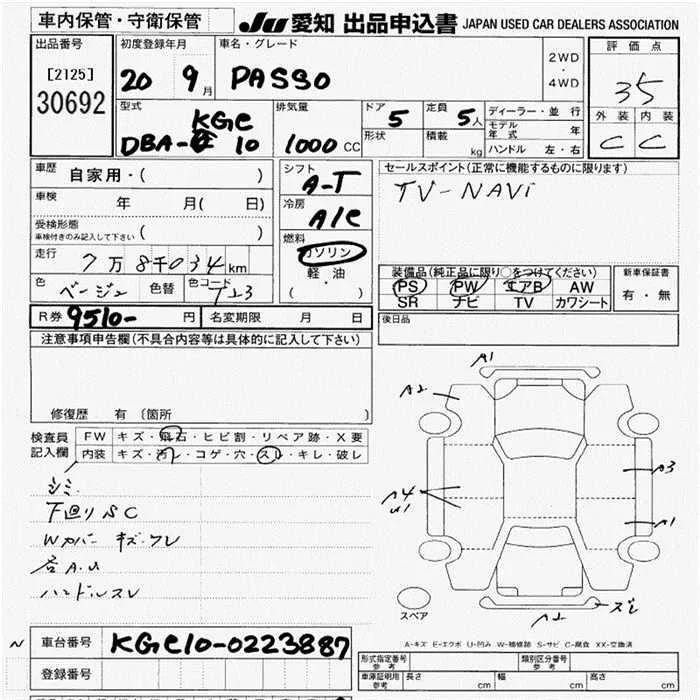 車内保管・守衛保管
JU 愛知 出品申込書 JAPAN USED CAR DEALERS ASSOCIATION
出品番号
[2125]
30692
初度登録年月
20 9月
車名・グレード
PASSO
2WD
・
4WD
評価点
35
外装 内装
C C
型式
KGC
DBA- 10
排気量
1000 CC
ドア 5
形状
定員 5人
積載 kg
ディーラー・並行
モデル年式 年
ハンドル 左・右
車歴
自家用・( )
車検 年 月( 日)
受検形態
車検付きのみ記入して下さい ( )
走行 7万8千034km
色 ベージュ 色替 色コード T23
シフト
A-T
冷房
A/C
燃料
ガソリン
軽・油
( )
セールスポイント(正常に機能するものに限ります)
TV-NAVi
装備品(純正品に限り○をつけてください)
PS PW エアB AW
SR ナビ TV カワシート
新車保証書
有・無
後日品
R券 9510- 円 名変期限 月 日
注意事項申告欄(不具合内容等は具体的に記入して下さい)
修復歴 有 〔箇所 〕
検査員記入欄
FW キズ・飛石・ヒビ割・リペア跡・X要
内装 キズ・汚レ・コゲ・穴・スレ・キレ・破レ
シミ
下廻りSC
Wカバー キズ・ワレ
各A.U
ハンドルスレ
A1
A2
A3
A4
U1
A1
A2
スレ
スペア
A-キズ E-エクボ U-凹み W-補修跡 S-サビ C-腐食 XX-交換済
車台番号 KGC10-0223887
登録番号
形式指定番号 参考
類別区分番号 参考
車庫証明用 参考
長さ cm 幅 cm 高さ cm